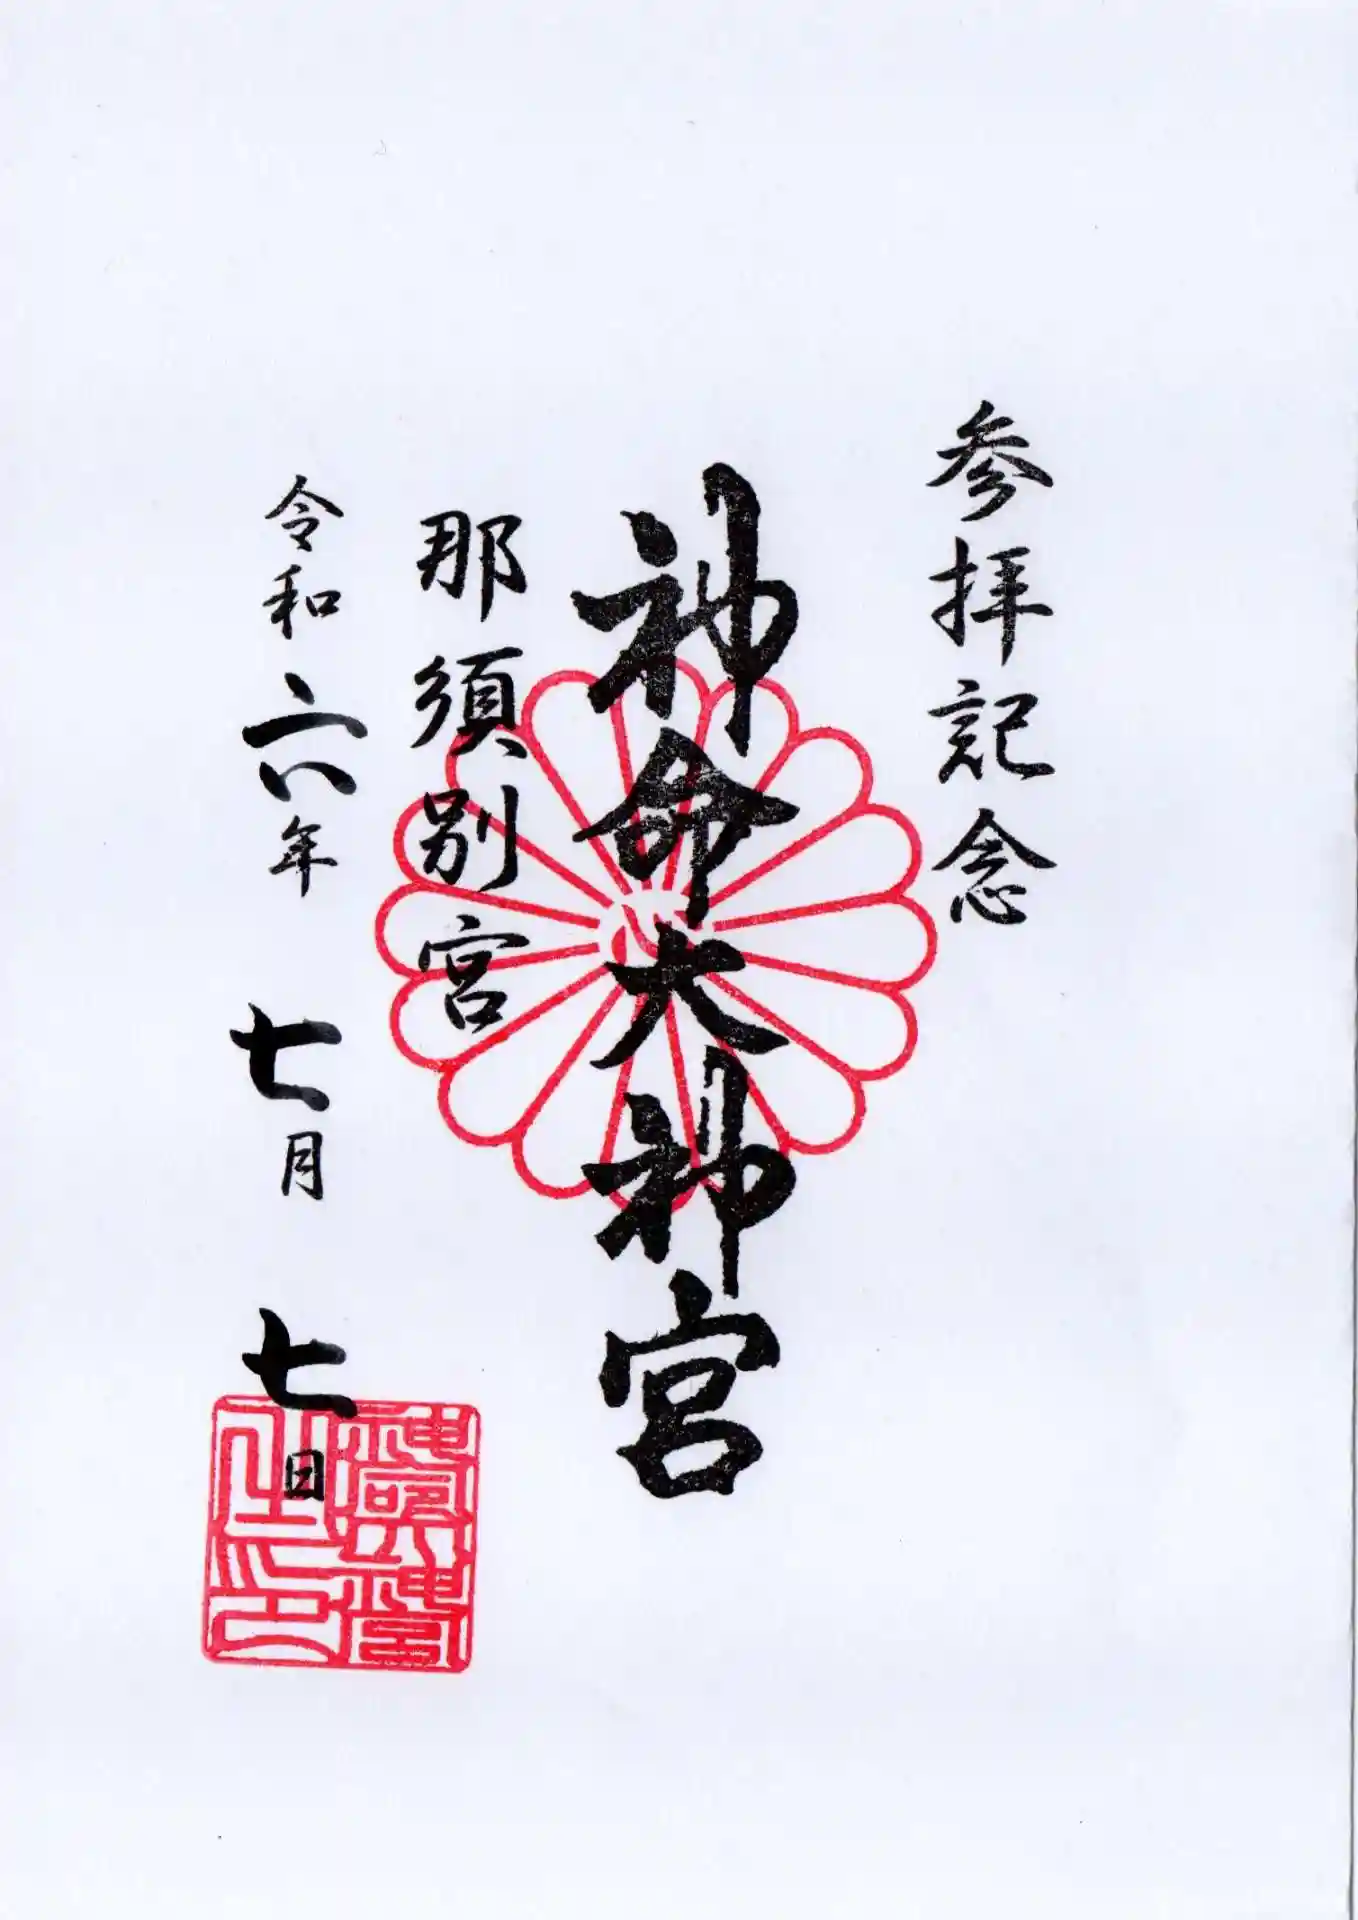 参拝記念
神命大神宮
那須別宮
令和六年 七月 七日